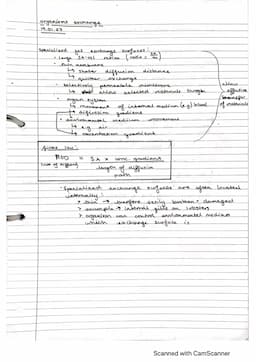 organisms exchange
19.01.23
Specialised gas exchange surfaces:
- large SA:vol ratio (ratio = SA/vol)
- thin membrane
↳ shorter diffusion distance
↳ quicker exchange
- selectively permeable membrane
↳ allow selected materials through
- organ system
↳ movement of internal medium (e.g) blood
↳ diffusion gradient
- environmental medium movement
↳ e.g air
↳ concentration gradient
allow
effective
transfer
of materials
Ficks law:
(rate of diffusion) = SA × conc. gradient
length of diffusion
path
- Specialised exchange surfaces are often located
internally:
thin → therefore easily broken + damaged
> example → internal gills on lobsters
> organism can control environmental medium
which exchange surface is
Scanned with CamScanner